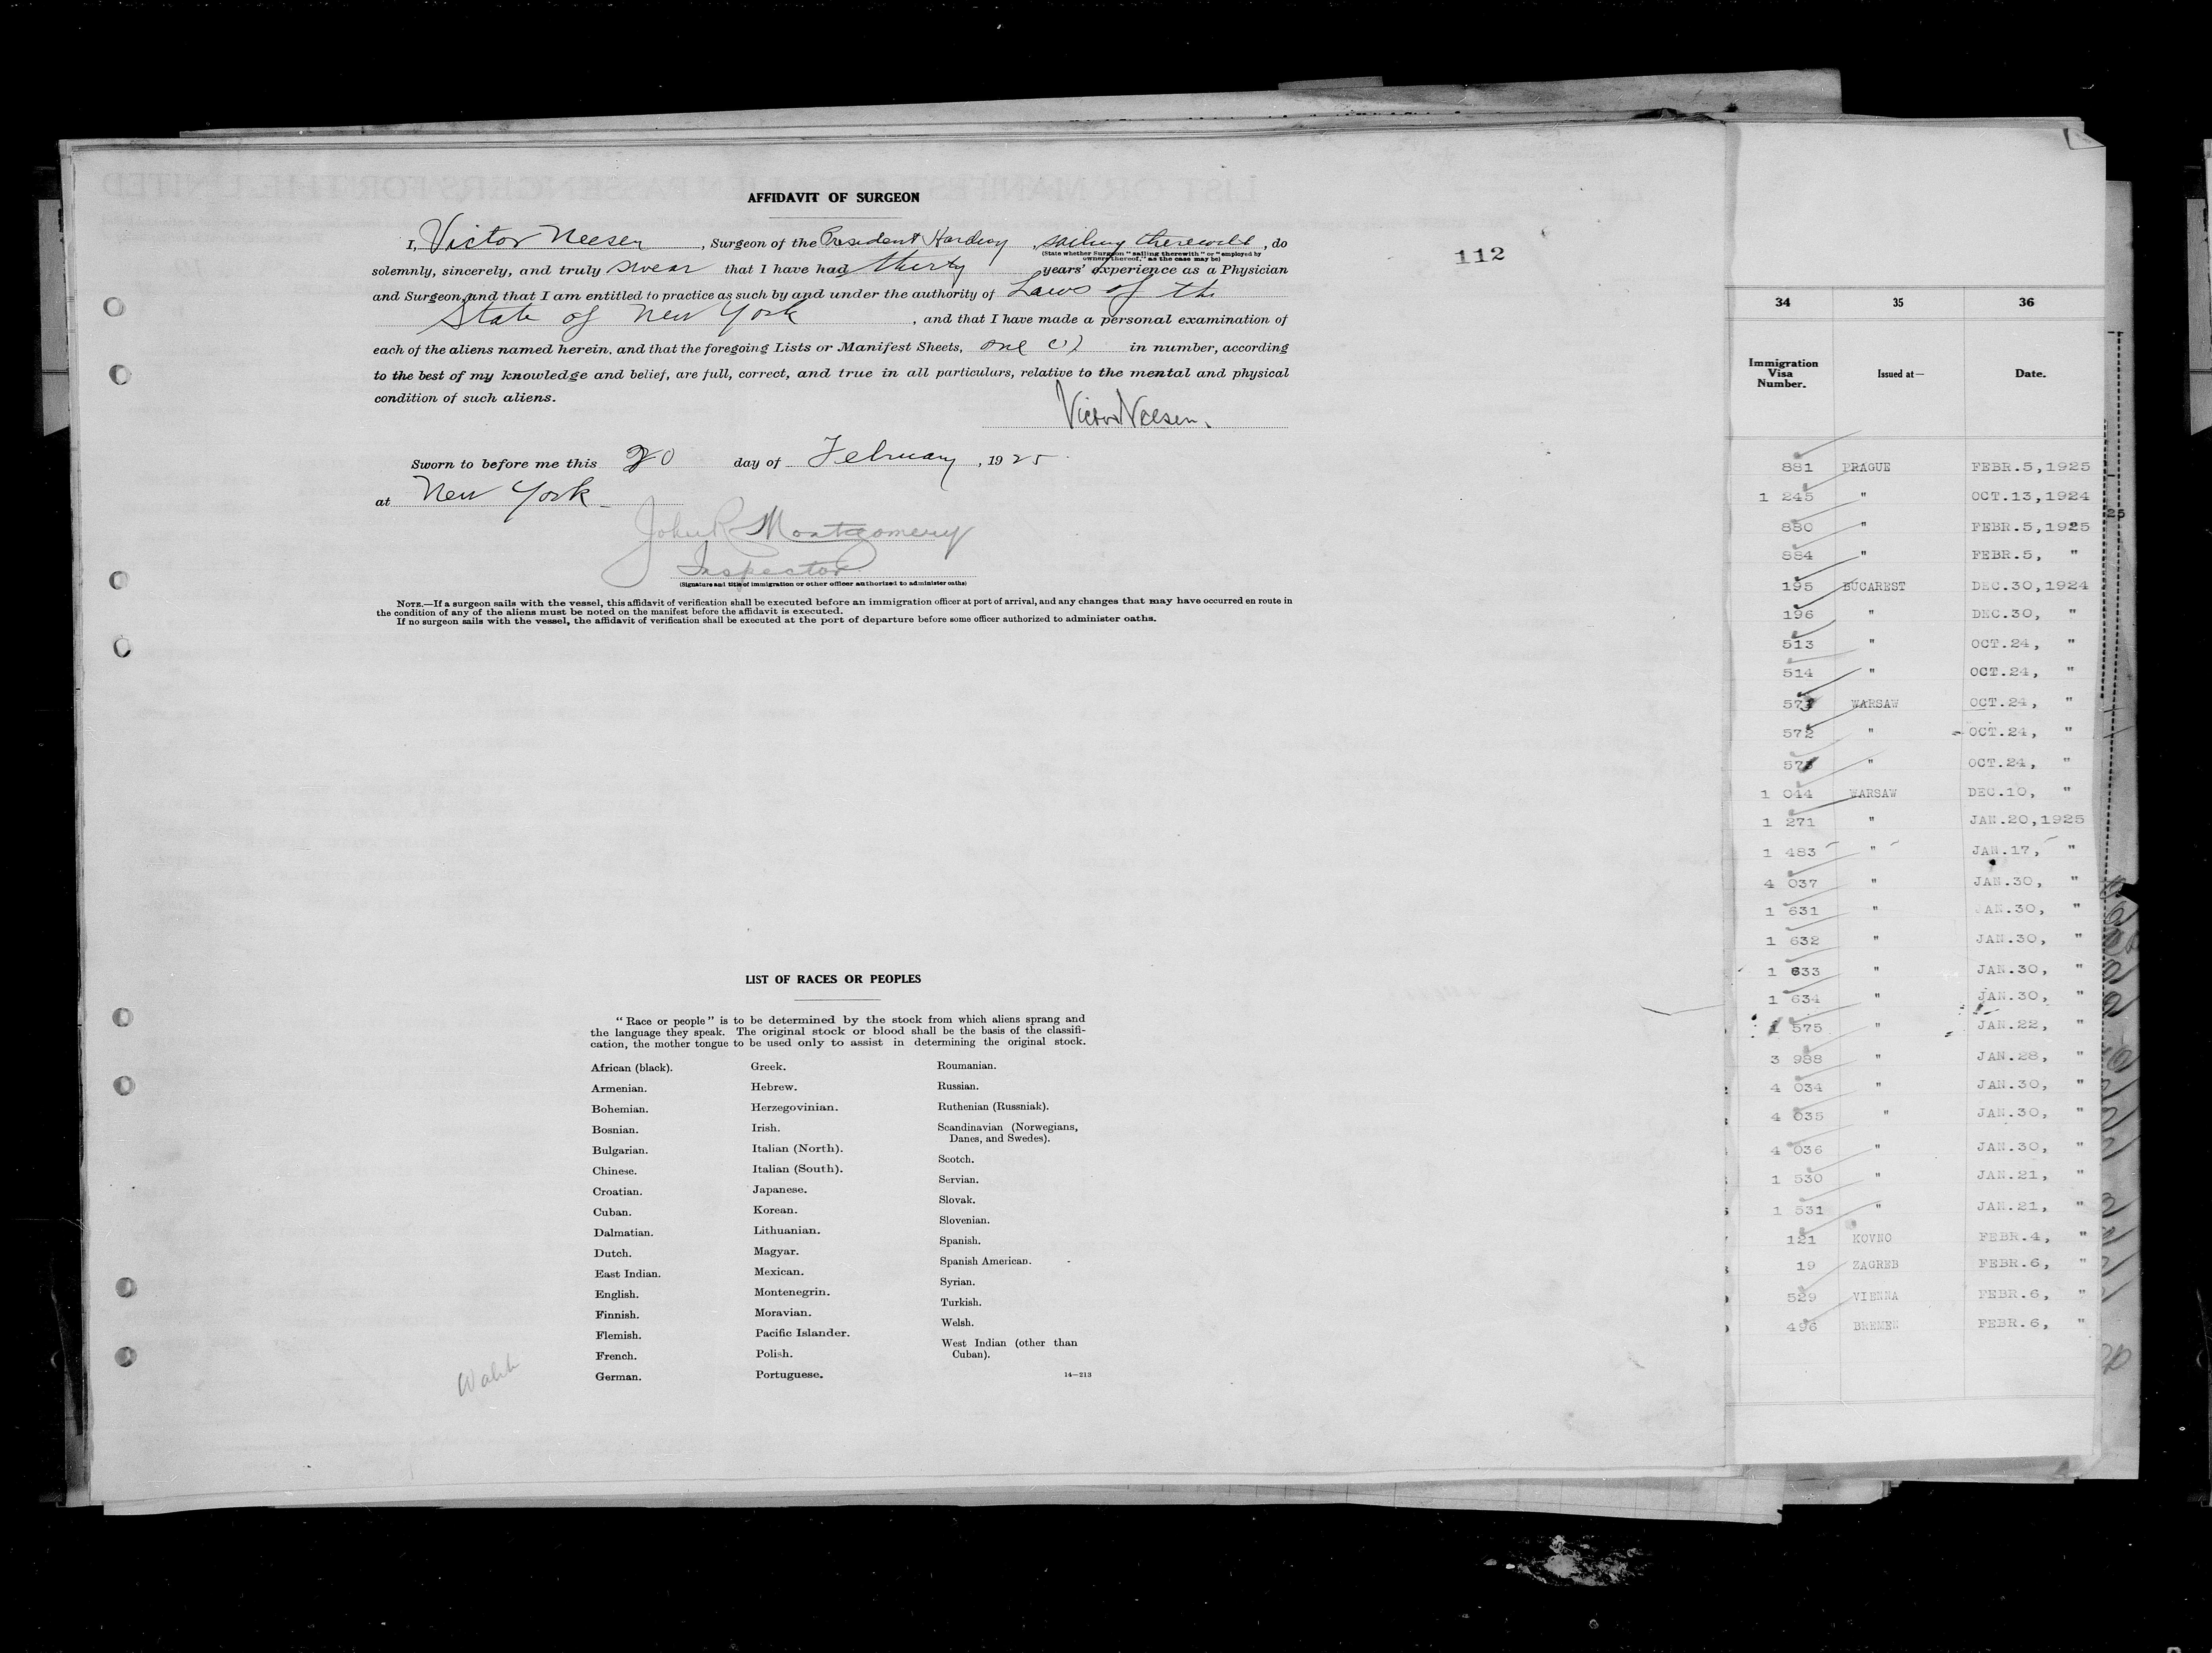 AFFIDAVIT OF SURGEON
I, Victor Neesen, Surgeon of the President Harding, sailing therewith, do
(State whether Surgeon "sailing therewith" or "employed by
owners thereof," as the case may be)
solemnly, sincerely, and truly swear that I have had thirty years' experience as a Physician
and Surgeon, and that I am entitled to practice as such by and under the authority of Laws of the
State of New York, and that I have made a personal examination of
each of the aliens named herein, and that the foregoing Lists or Manifest Sheets, one (1) in number, according
to the best of my knowledge and belief, are full, correct, and true in all particulars, relative to the mental and physical
condition of such aliens.
Victor Neesen.
Sworn to before me this 20 day of February, 1925
at New York
John R Montgomery
Inspector
(Signature and title of immigration or other officer authorized to administer oaths)
NOTE.—If a surgeon sails with the vessel, this affidavit of verification shall be executed before an immigration officer at port of arrival, and any changes that may have occurred en route in
the condition of any of the aliens must be noted on the manifest before the affidavit is executed.
If no surgeon sails with the vessel, the affidavit of verification shall be executed at the port of departure before some officer authorized to administer oaths.
112
LIST OF RACES OR PEOPLES
"Race or people" is to be determined by the stock from which aliens sprang and
the language they speak. The original stock or blood shall be the basis of the classifi-
cation, the mother tongue to be used only to assist in determining the original stock.
African (black).
Armenian.
Bohemian.
Bosnian.
Bulgarian.
Chinese.
Croatian.
Cuban.
Dalmatian.
Dutch.
East Indian.
English.
Finnish.
Flemish.
French.
German.
Greek.
Hebrew.
Herzegovinian.
Irish.
Italian (North).
Italian (South).
Japanese.
Korean.
Lithuanian.
Magyar.
Mexican.
Montenegrin.
Moravian.
Pacific Islander.
Polish.
Portuguese.
Roumanian.
Russian.
Ruthenian (Russniak).
Scandinavian (Norwegians,
Danes, and Swedes).
Scotch.
Servian.
Slovak.
Slovenian.
Spanish.
Spanish American.
Syrian.
Turkish.
Welsh.
West Indian (other than
Cuban).
14—213
34 35 36
Immigration
Visa
Number.
Issued at—
Date.
881 PRAGUE FEBR.5,1925
1 245 " OCT.13,1924
880 " FEBR.5,1925
884 " FEBR.5, "
195 BUCAREST DEC.30,1924
196 " DEC.30, "
513 " OCT.24, "
514 " OCT.24, "
WARSAW OCT.24, "
572 " OCT.24, "
" OCT.24, "
1 044 WARSAW DEC.10, "
1 271 " JAN.20,1925
1 483 " JAN.17, "
4 037 " JAN.30, "
1 631 " JAN.30, "
1 632 " JAN.30, "
1 633 " JAN.30, "
1 634 " JAN.30, "
1 575 " JAN.22, "
3 988 " JAN.28, "
4 034 " JAN.30, "
4 035 " JAN.30, "
4 036 " JAN.30, "
1 530 " JAN.21, "
1 531 " JAN.21, "
121 KOVNO FEBR.4, "
19 ZAGREB FEBR.6, "
529 VIENNA FEBR.6, "
496 BREMEN FEBR.6, "